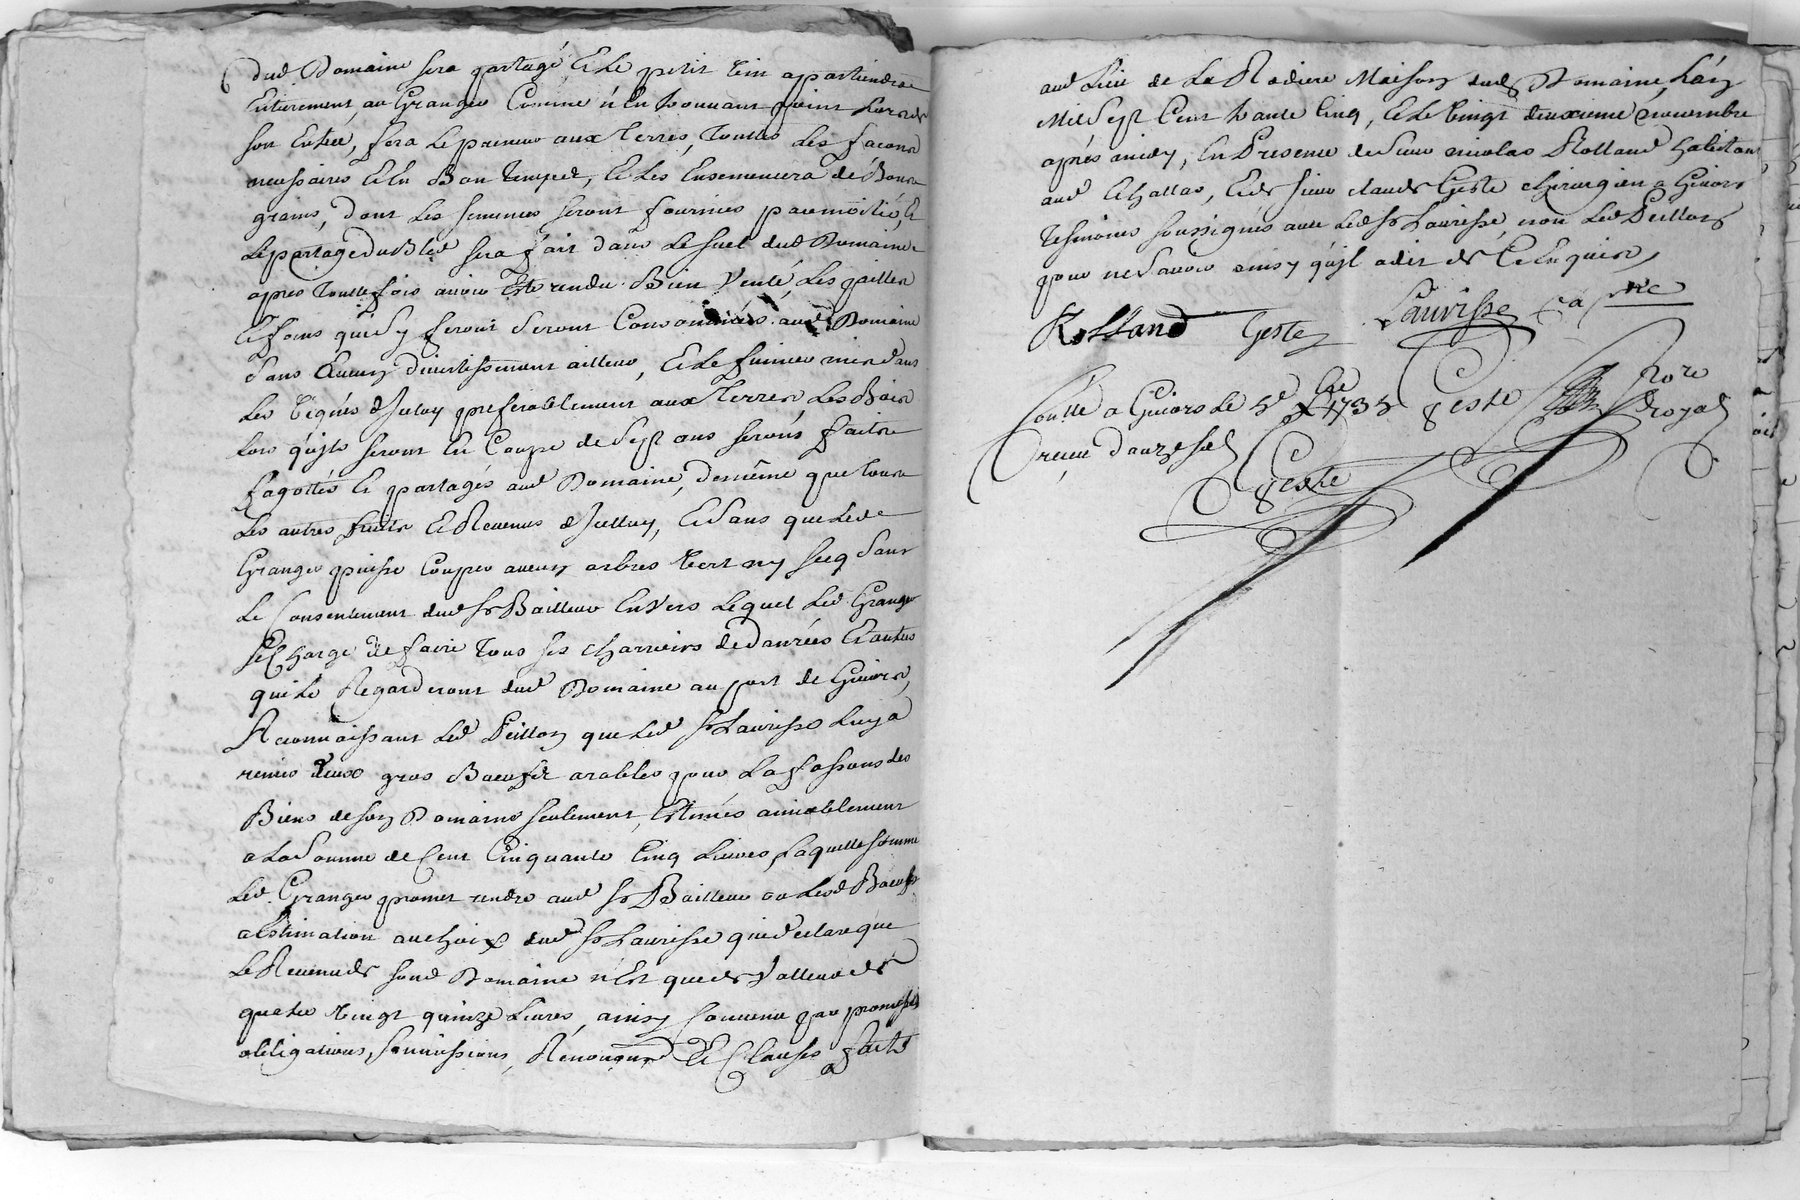 dud Domaine sera partagé Et Le petit vin apartiendra
Entierement au Granger Comme n'En donnant point Lors de
son Entrée, fera Le preneur aux terres, touttes Les facons
necessaires Et En Bon temps, Et Les Ensemencera de Bons
grains, dont Les semences seront fournies par moitié, Et
Le partage du Bled sera fait dans Le suel dud Domaine
apres touttefois avoir Esté rendu Bien Venté, Les pailles
Et foins qui s'y feront seront Consommés aud Domaine
sans Aucun divertissement ailleurs, Et Le fumier mis dans
Les Vignes d'Iceluy preferablement aux terres, Les Bois
Lors qu'ils seront En Coupe de sept ans seront faits
fagottés Et partagés aud Domaine, de mème que tous
Les autres fruits Et Revenus d'Icelluy, Et sans que Led
Granger puisse Couper aucun arbres Vert ny secq sans
Le Consentement dud sr Bailleur Envers Lequel Led Granger
se Charge de faire tous ses charrois de danrées Et autres
qui Le Regarderont dud Domaine au port de Givors,
Reconnoissant Led Peillon que Led sr Laurisse Luy a
remis deux gros Boeufs arables pour La fassons des
Biens de son Domaine seulement, Estimés amiablement
a La somme de Cent Cinquante Cinq Livres, Laquelle somme
Led Granger promet rendre aud sr Bailleur ou Lesd Boeufs
a Estimation au choix dud sr Laurisse qui declare que
Le Revenu de sond Domaine n'Est que de Valleur de
quatre Vingt quinze Livres, ainsy Convenu par promesses
obligations, soumissions, Renonçons Et Clauses faits
aud Lieu de La Rodiere Maison dud Domaine, L'an
Mil sept Cent trante Cinq, Et Le Vingt deuxieme novembre
après midy, En Presence de sieur nicolas Rolland habitant
aud Chassas, Et de sieur claude Geste chirurgien a Givors
tesmoins soussignés avec Led sr Laurisse, non Led Peillon
pour ne savoir ainsy qu'il a dit de Ce Enquis
Rolland Geste Laurisse
Con.llé a Givors Le 5e Xbre 1735 Geste
Receu douze sols
Geste
Nore
Royal